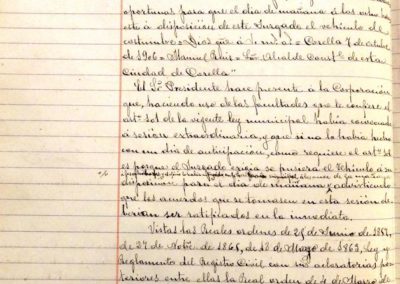 oportunas para que el dia de mañana á las ocho
esté á disposicion de este Juzgado el vehículo de
costumbre = Dios que á V. m. a. = Corella 7 de octubre
de 1906 = Manuel = Sr. Alcalde Constl. de esta
Ciudad de Corella"
El Sr. Presidente hace presente á la Corporación
que, haciendo uso de las facultades que le confiere el
artº de la vigente ley municipal habia convocado
á sesion extraordinaria, y que si no lo habia hecho
con un dia de anticipación, como requiere el artº
es porque el Juzgado exigía se pusiera el vehículo á su
disposicion para el dia de mañana, advirtiendo
que los acuerdos que se tomasen en esta sesión de-
berian ser ratificados en la inmediata.
Vistas las Reales ordenes de de Junio de
de 27 de Novbre. de de 12 de Mayo de Ley y
Reglamento del Registro Civil con sus aclaratorias pos-
teriores entre ellas la Real orden de 4 de Marzo de